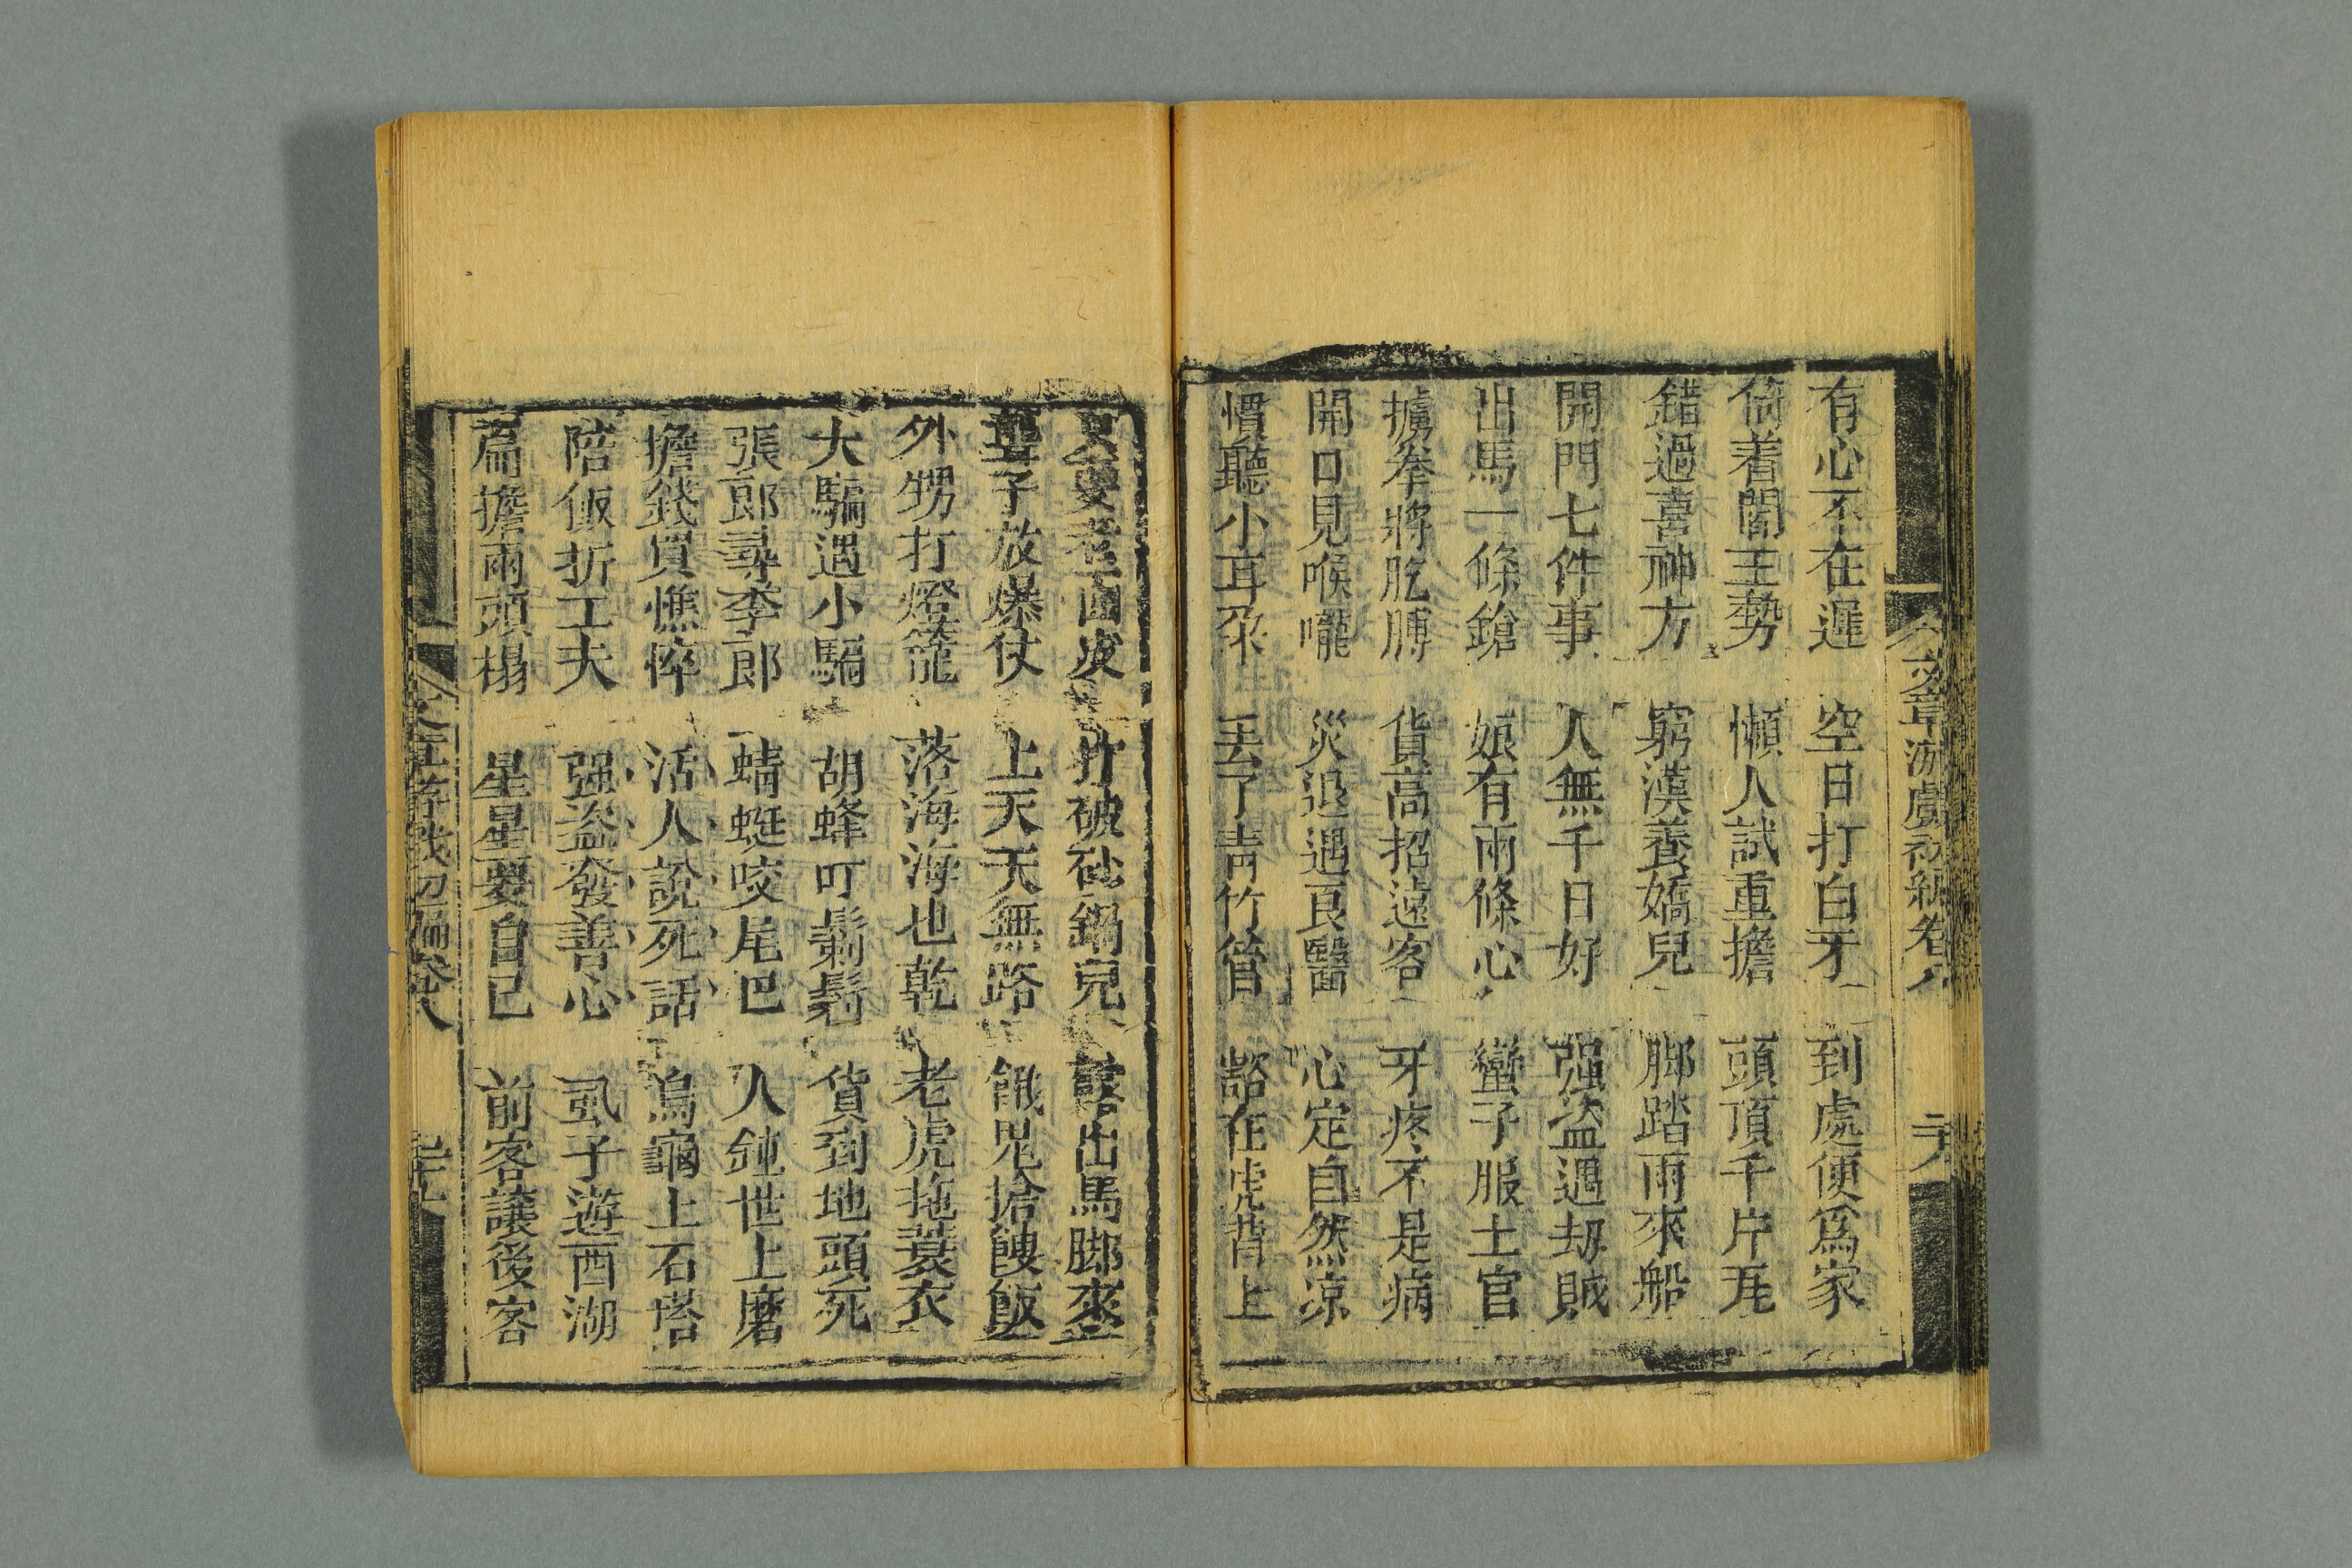 文章游戲初編卷八
有心不在遲 空日打白牙 到處便爲家
倚着閻王勢 懶人試重擔 頭頂千片瓦
錯過喜神方 窮漢養嬌兒 脚踏兩來船
開門七件事 人無千日好 强盜遇劫賊
出馬一條鎗 娘有兩條心 蠻子服土官
擄拳將肐膊 貨高招遠客 牙疼不是病
開口見喉嚨 災退遇良醫 心定自然凉
慣聽小耳朶 丢了青竹管 豁在虎背上
老面皮 打破砂鍋兒 露出馬脚來
聾子放爆仗 上天天無路 餓鬼搶餿飯
外甥打燈籠 落海海也乾 老虎拖蓑衣
大騙遇小騙 胡蜂叮鬎鬁 貨到地頭死
張郎尋李郎 蜻蜓咬尾巴 人鈍世上磨
擔錢買憔悴 活人說死話 烏龜上石塔
陪飯折工夫 强盜發善心 虱子遊西湖
扁擔兩頭榻 星星要自己 前客讓後客
文章游戲初編卷八